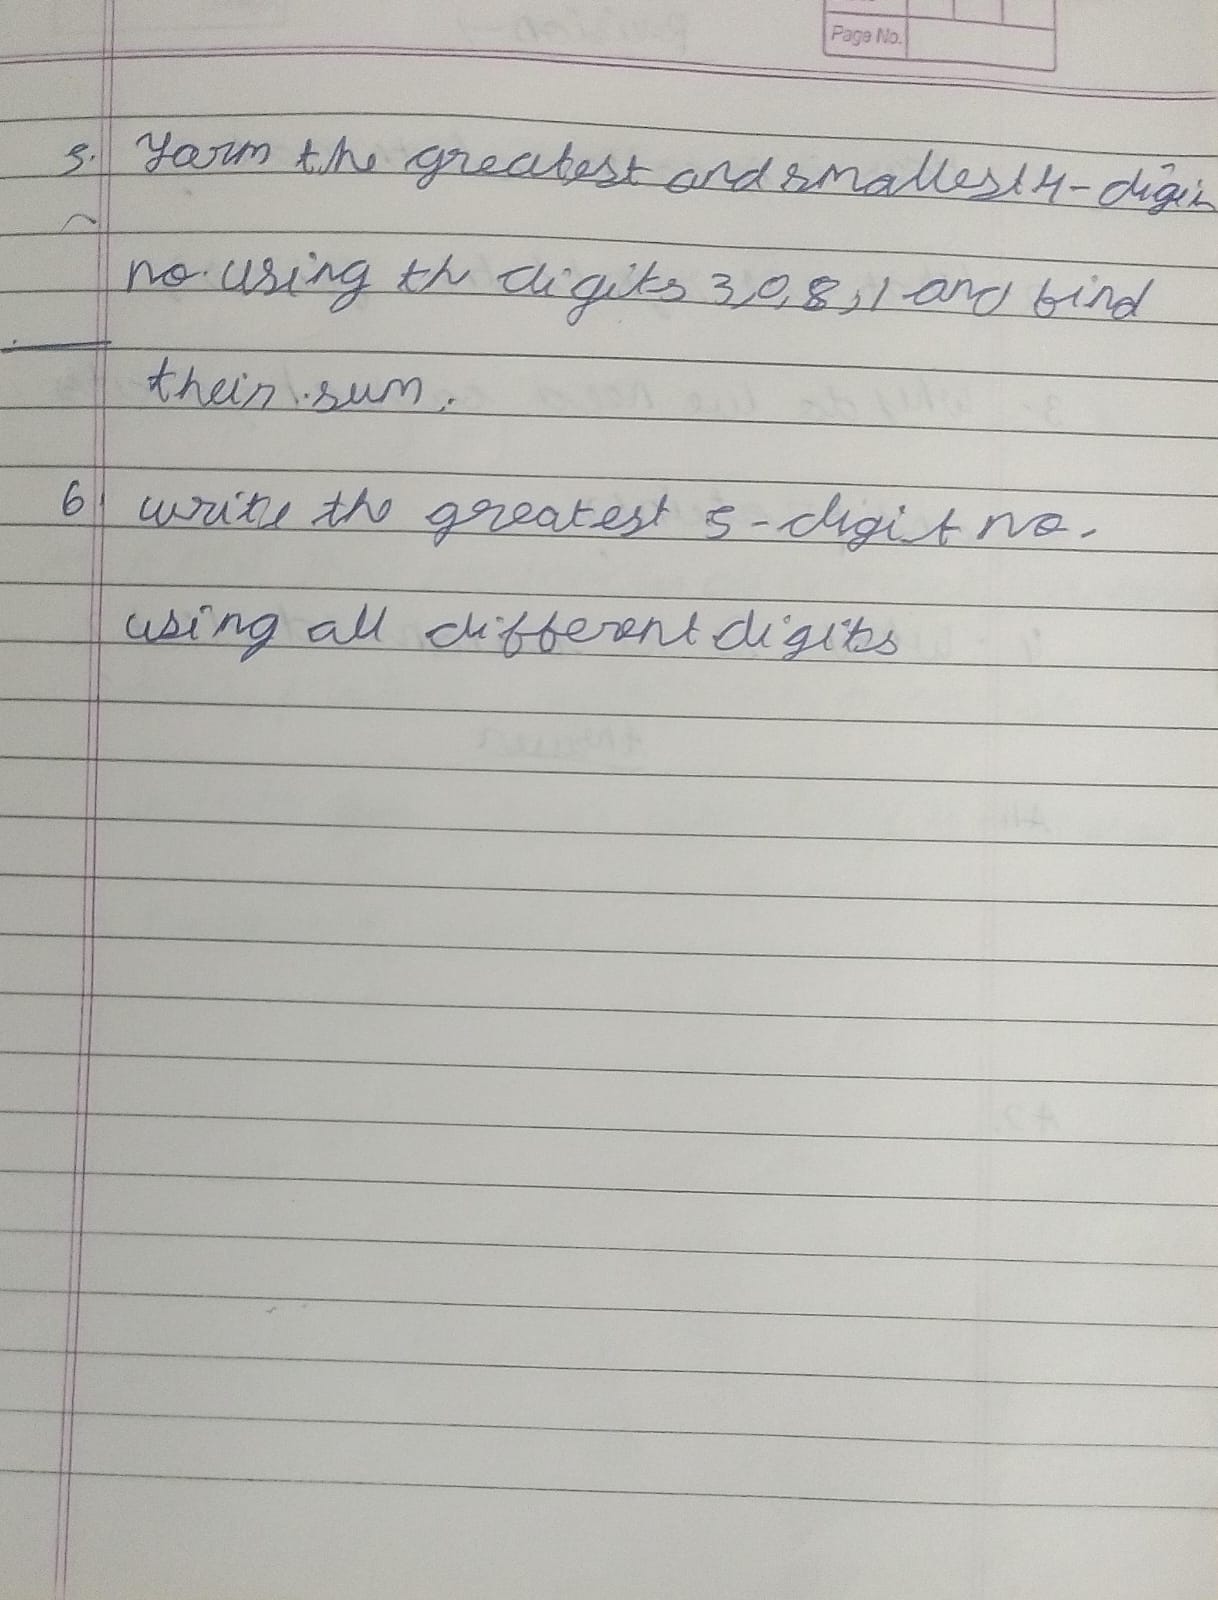 Page No.
5. Form the greatest and smallest 4-digit
no. using th digits 3,0,8,1 and find
their sum.
6. write the greatest 5-digit no.
using all different digits